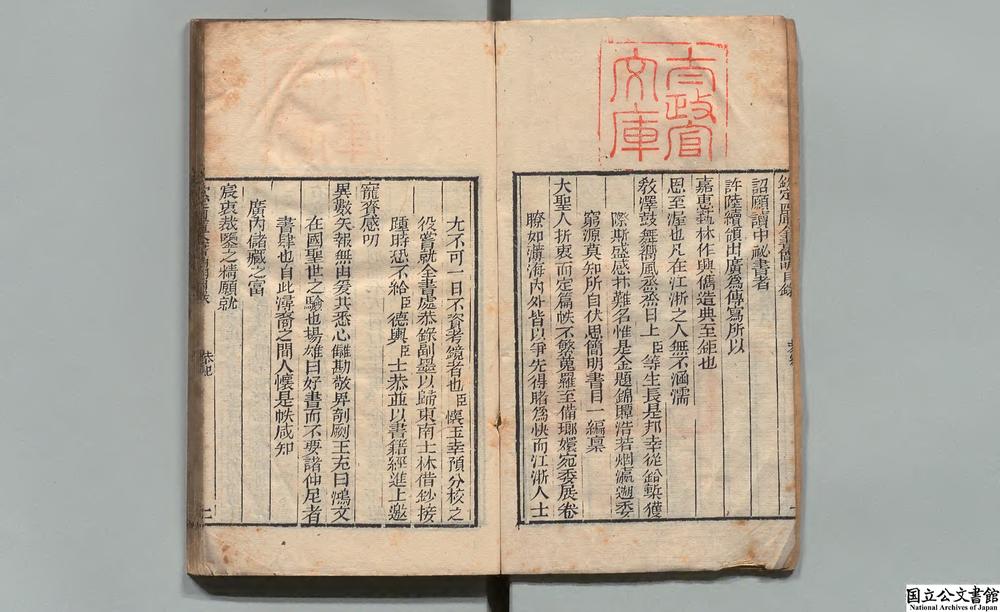 太政官
文庫
欽定四庫全書簡明目錄
詔願讀中祕書者
許陸續領出廣爲傳寫所以
嘉惠藝林作興儁造典至鉅也
恩至渥也凡在江浙之人無不涵濡
敎澤鼓舞嚮風烝烝日上臣等生長是邦幸從鉛槧獲
際斯盛感抃難名惟是金題錦贉浩若烟瀛溯委
窮源莫知所自伏思簡明書目一編稟
大聖人折衷而定篇帙不繁蒐羅至備瑯嬛宛委展卷
瞭如濱海內外皆以爭先得睹爲快而江浙人士
尤不可一日不資考鏡者也臣懊玉幸預分校之
役嘗就全書處恭錄副墨以歸東南士林借鈔接
踵時恐不給臣德輿臣士恭並以書籍經進上邀
寵賚感叨
異數矢報無由爰其悉心讎勘敬畀剞劂王充曰鴻文
在國聖世之驗也揚雄曰好書而不要諸仲尼者
書肆也自此潯裔之間人懷是帙咸知
廣內儲藏之富
宸衷裁鑒之精願就
恭紀
二
国立公文書館
National Archives of Japan